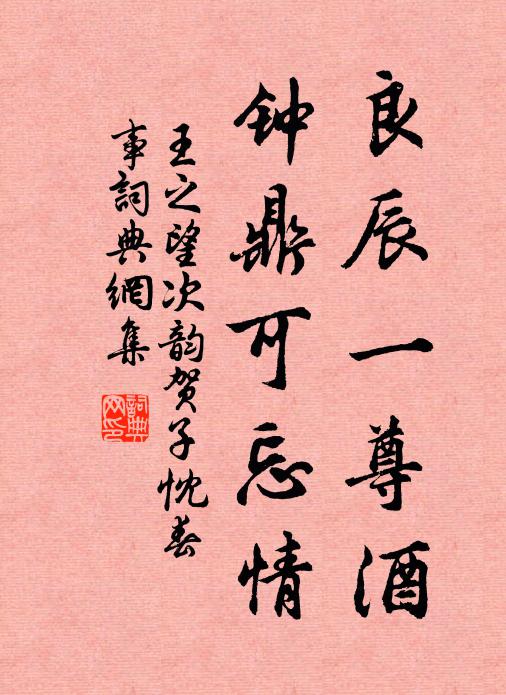 良辰一尊酒
钟鼎可忘情
王之望次韵贺子忱春
事詞典網集
詞典
网印